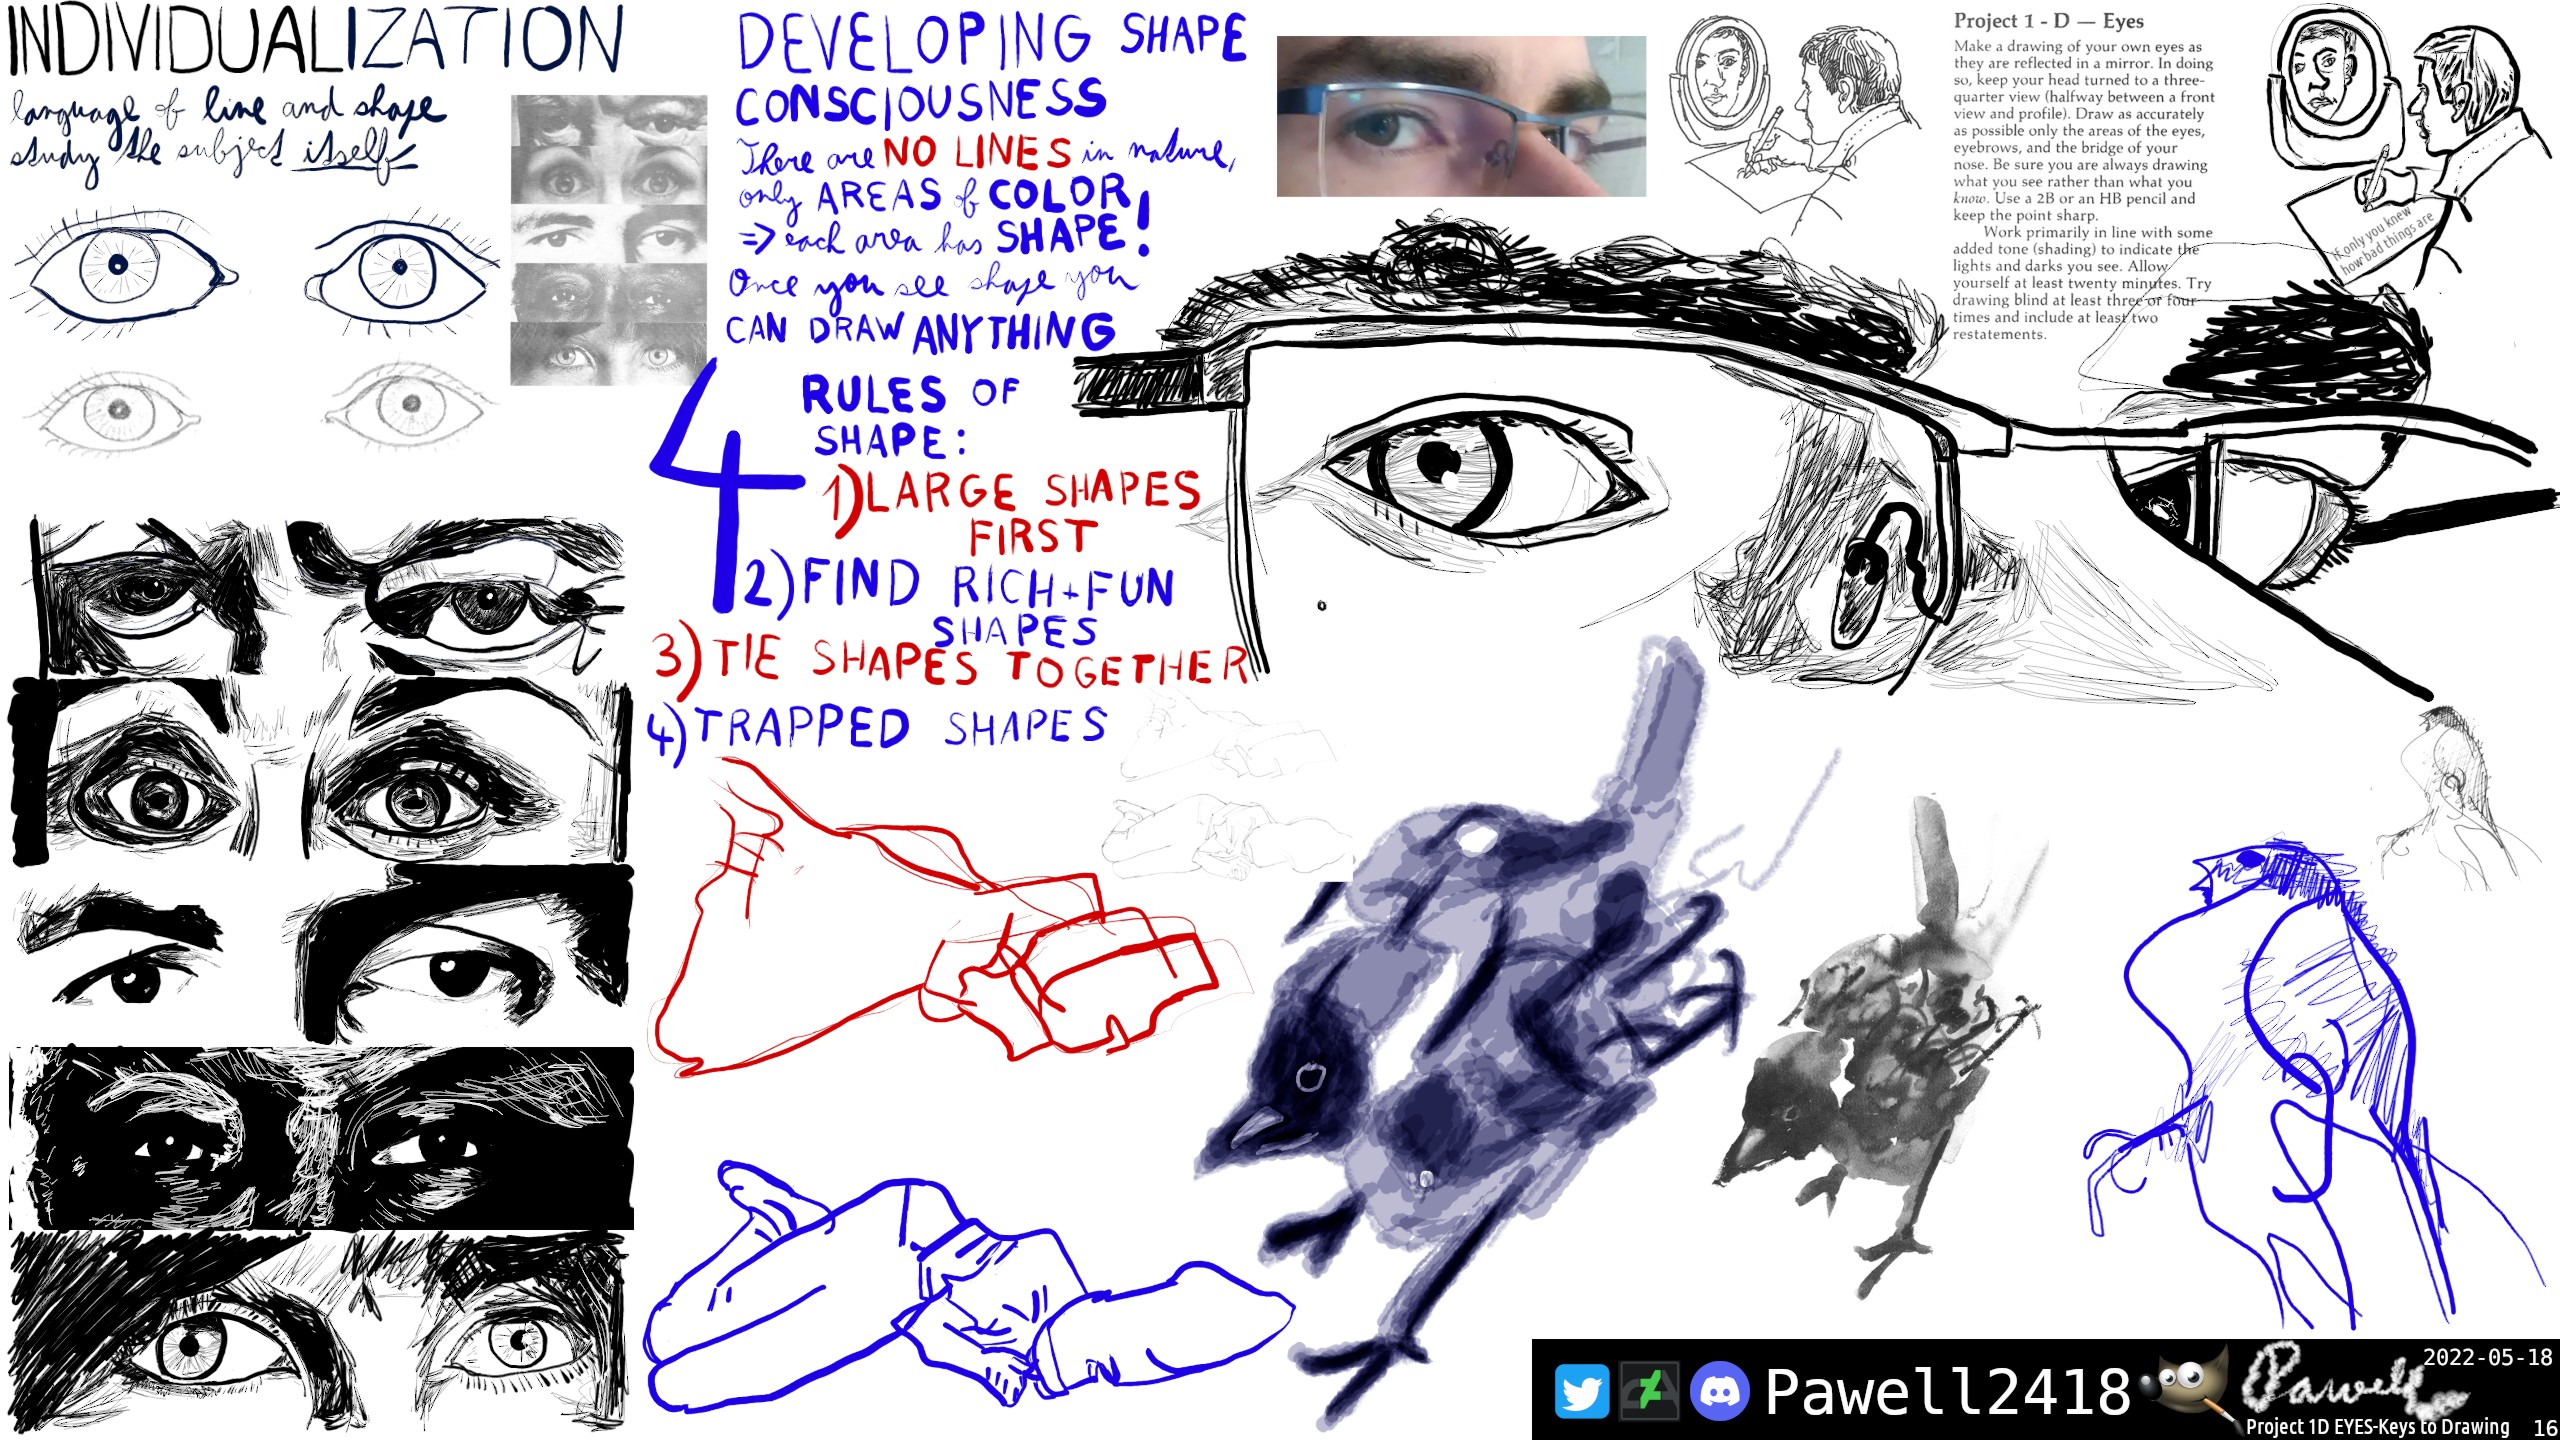 INDIVIDUALIZATION
language of line and shape
study the subject itself
DEVELOPING SHAPE
CONSCIOUSNESS
There are NO LINES in nature,
only AREAS of COLOR
=> each area has SHAPE!
Once you see shape you
CAN DRAW ANYTHING
4 RULES OF
SHAPE:
1) LARGE SHAPES
FIRST
2) FIND RICH+FUN
SHAPES
3) TIE SHAPES TOGETHER
4) TRAPPED SHAPES
Project 1 - D — Eyes
Make a drawing of your own eyes as
they are reflected in a mirror. In doing
so, keep your head turned to a three-
quarter view (halfway between a front
view and profile). Draw as accurately
as possible only the areas of the eyes,
eyebrows, and the bridge of your
nose. Be sure you are always drawing
what you see rather than what you
know. Use a 2B or an HB pencil and
keep the point sharp.
Work primarily in line with some
added tone (shading) to indicate the
lights and darks you see. Allow
yourself at least twenty minutes. Try
drawing blind at least three or four
times and include at least two
restatements.
If only you knew
how bad things are
Pawell2418
Pawell
2022-05-18
Project 1D EYES-Keys to Drawing
16